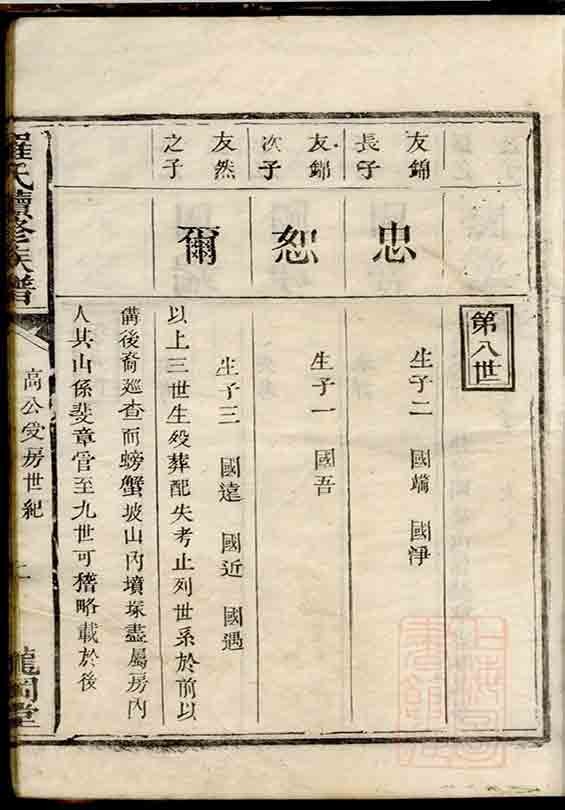 第八世
友錦
長子
忠
生子二 國端 國淨
友錦
次子
恕
生子一 國吾
友然
之子
爾
生子三 國遠 國近 國遇
以上三世生歿葬配失考止列世系於前以
備後裔廵查而螃蟹坡山內墳塚盡屬房內
人其山係斐章管至九世可稽略載於後
羅氏續修族譜
高公受房世紀